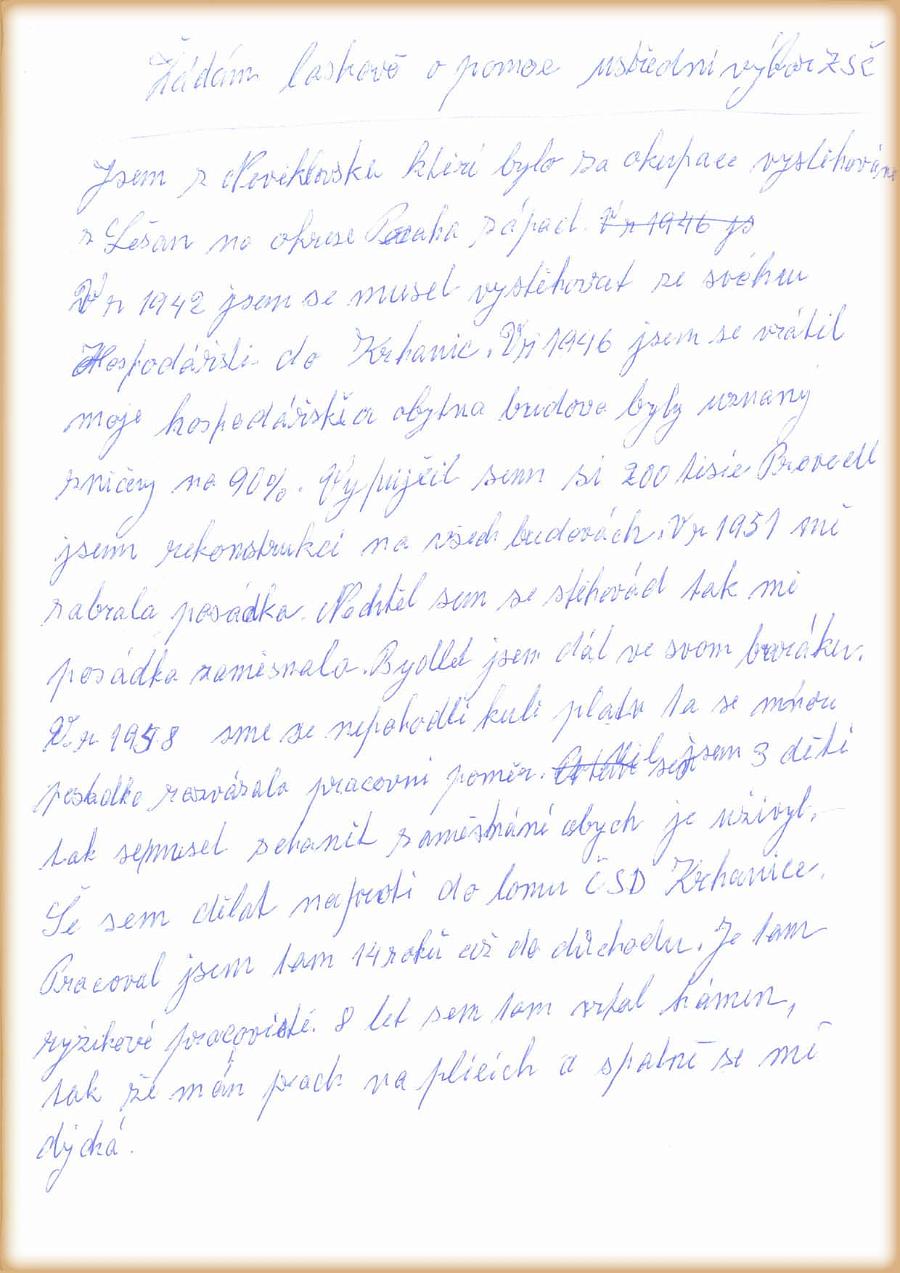 Žádám laskavě o pomoc ustřední výbor ZSČ
Jsem z Neveklovska kteri bylo za okupace vystěhován
z Lešan na okrese Praha západ. V r 1946 js
V r 1942 jsem se musel vystěhovat ze svéhu
Hospodářsti do Krhanic. V r 1946 jsem se vrátil
moje hospodářská a obytna budova byly uznaný
zničeny na 90%. Vypujčil semn si 200 tisíc Provedl
jsem rekonstrukci na všech budovách. V r 1951 mě
zabrala posádka. Nechtěl sem se stěhovád tak mi
posádka zaměsnala. Bydlel jsem dál ve svom baráku.
V r 1958 sme se nepohodli kuli platu ta se mnou
posadka rozvázala pracovni poměr. jsem 3 děti
tak semusel sehanit zaměstnání abych je uživyl.
Še sem dělat naproti do lomu ČSD Krhanice.
Pracoval jsem tam 14 roků až do důchodu. Je tam
ryzikové pracovisté. 8 let sem tam vrtal kámen,
tak že mán prach na plicich a spatně se mě
dýchá.